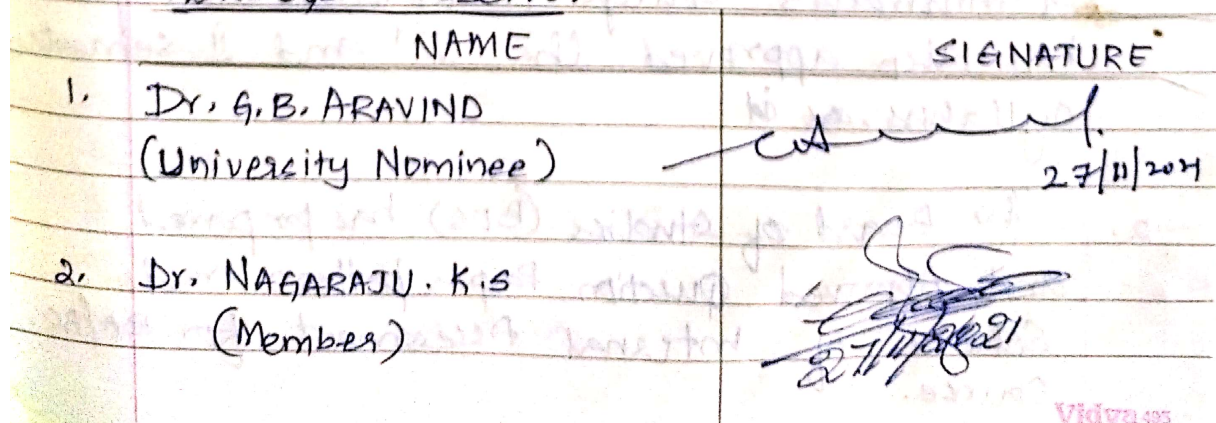 NAME SIGNATURE
1. Dr. G. B. ARAVIND
(University Nominee)
27/11/2021
2. Dr. NAGARAJU. K.S
(Member)
27/11/2021
Vidya 495